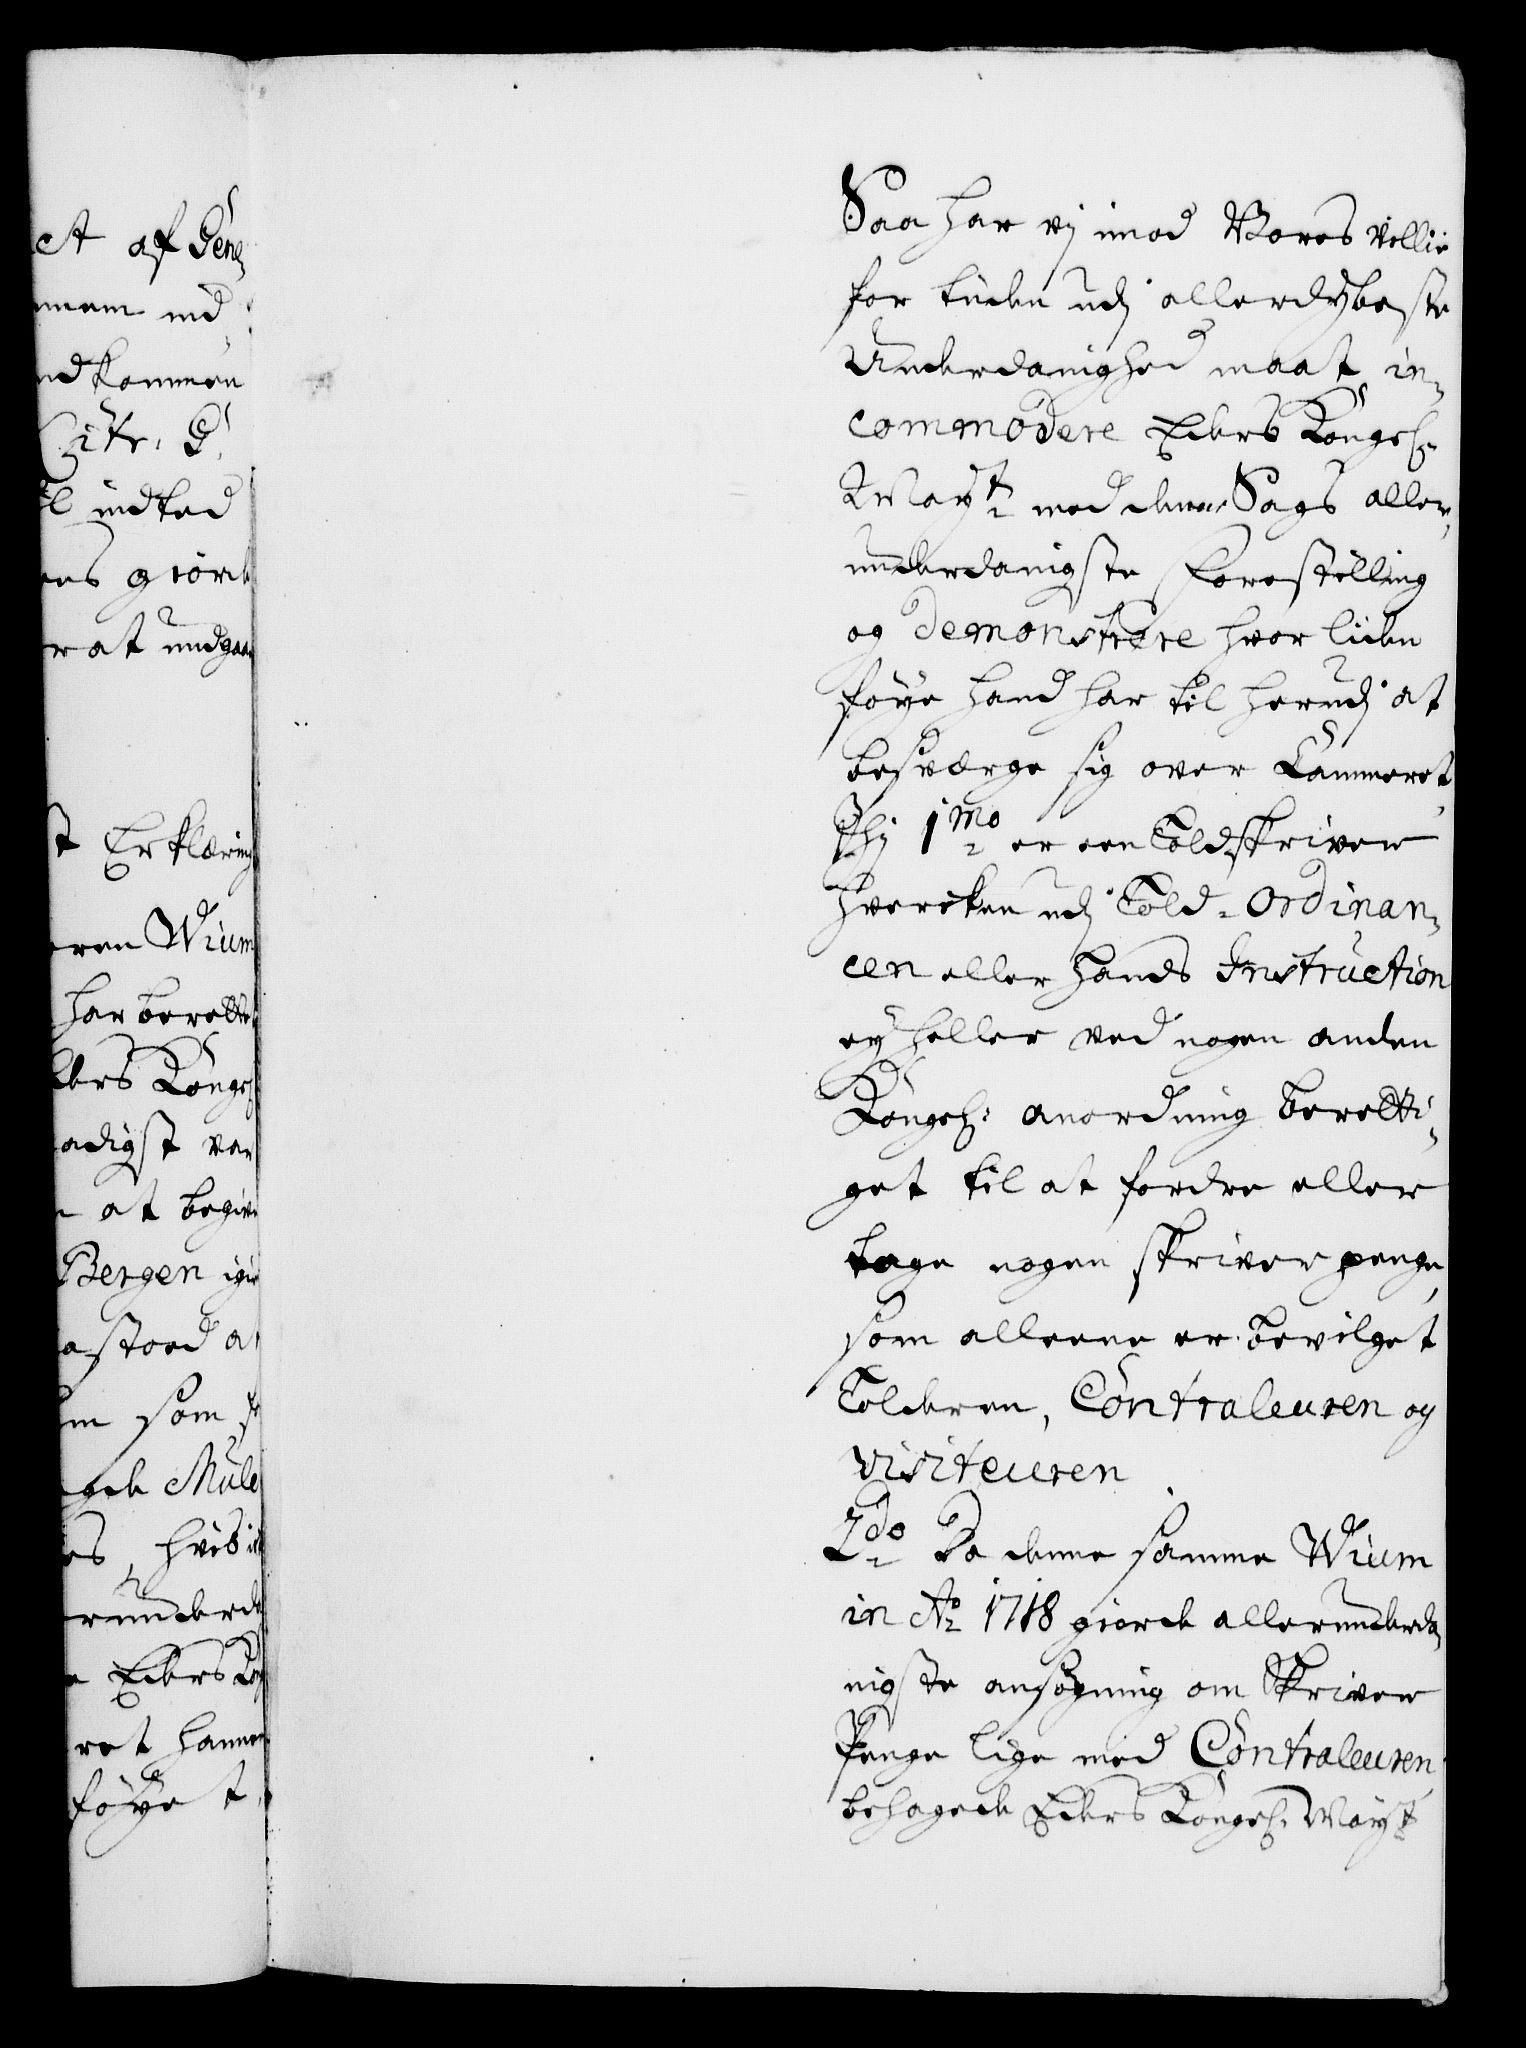 ct af Gene¬
nnem ind
indkommen
Litr. G.
til indkod
es giord
rat undgaa
st Erklæring
eren Wium
har berette
Eders Konge
adigst var
at begive
Bergen igie
astoed a
som
gede Mule
es, hvis
runderd
Eders Kon
ret hannem
føye t
Saa har vj imod Vores Villie
for tiiden udj allerdybeste
Underdanighed maat in¬
commodere Eders Kongel.
Mayt. med denne Sags aller¬
underdanigste Forestilling
og demonstrere hvor liiden
føye hand har til herudj at
besværge sig over Cammeret,
Thj 1mo er een Toldskriver
hvercken udj Told-Ordinan¬
cen eller hands Instruction
ey heller ved nogen anden
Kongel: anordning beretti¬
get til at fordre eller
tage nogen skriverpenge,
som alleene er bevilget
Tolderen, Contraleuren og
visiteuren.
2do Da denne samme Wium
in Ao 1718 giorde allerunderda¬
nigste ansøgning om Skriver
Penge lige med Contraleuren,
behagede Eders Kongel. Mayt.